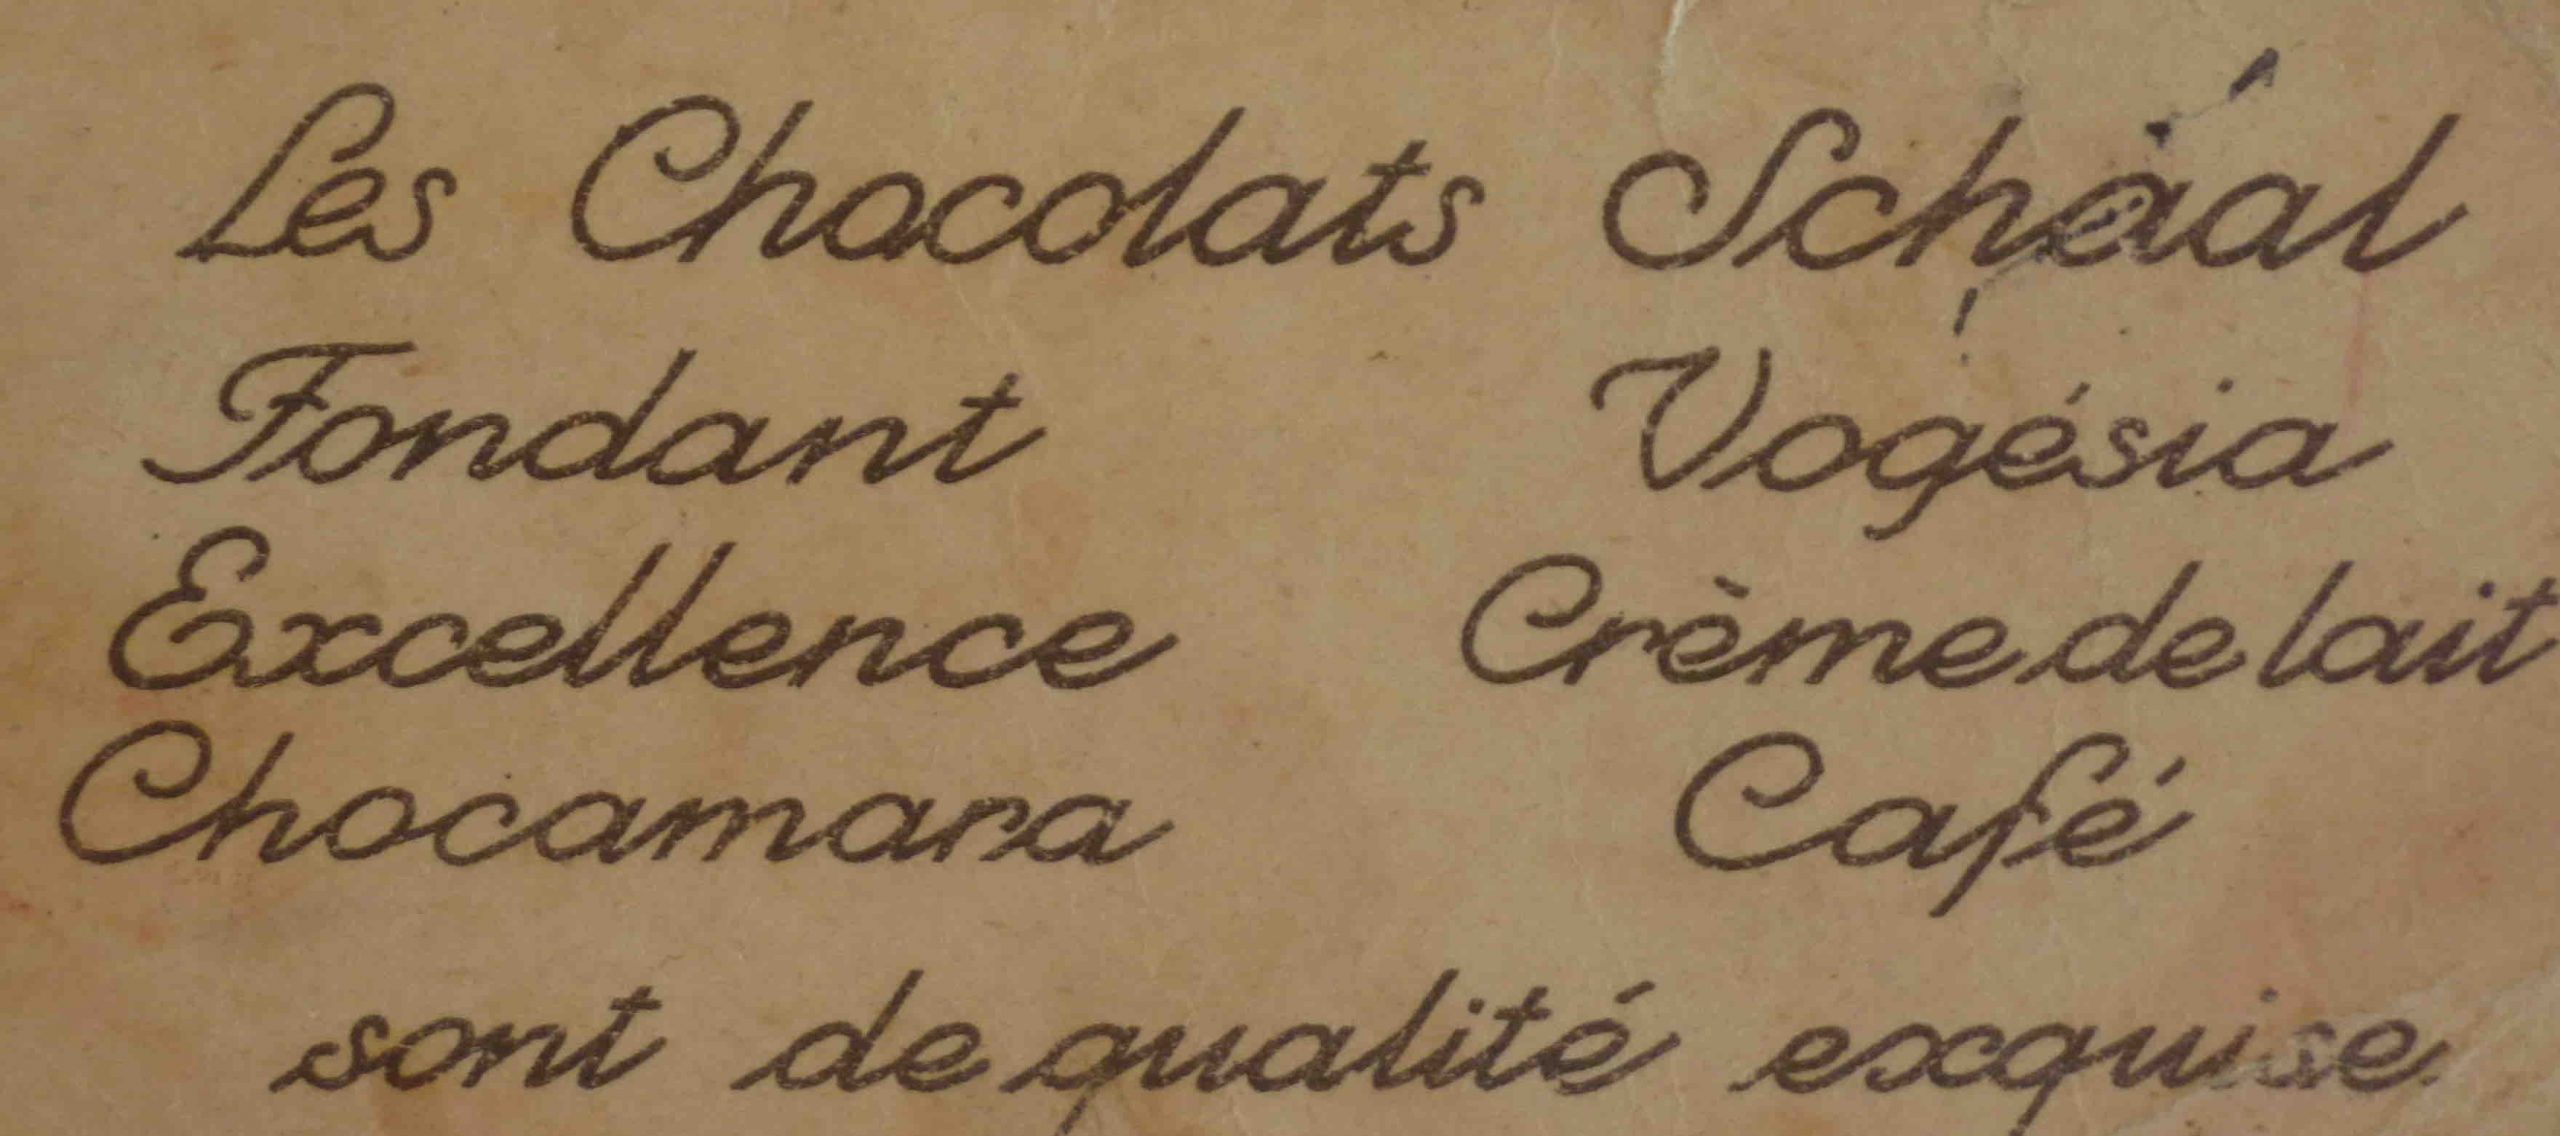 Les Chocolats Schaal
Fondant Vogésia
Excellence Crème de lait
Chocamara Café
sont de qualité exquise